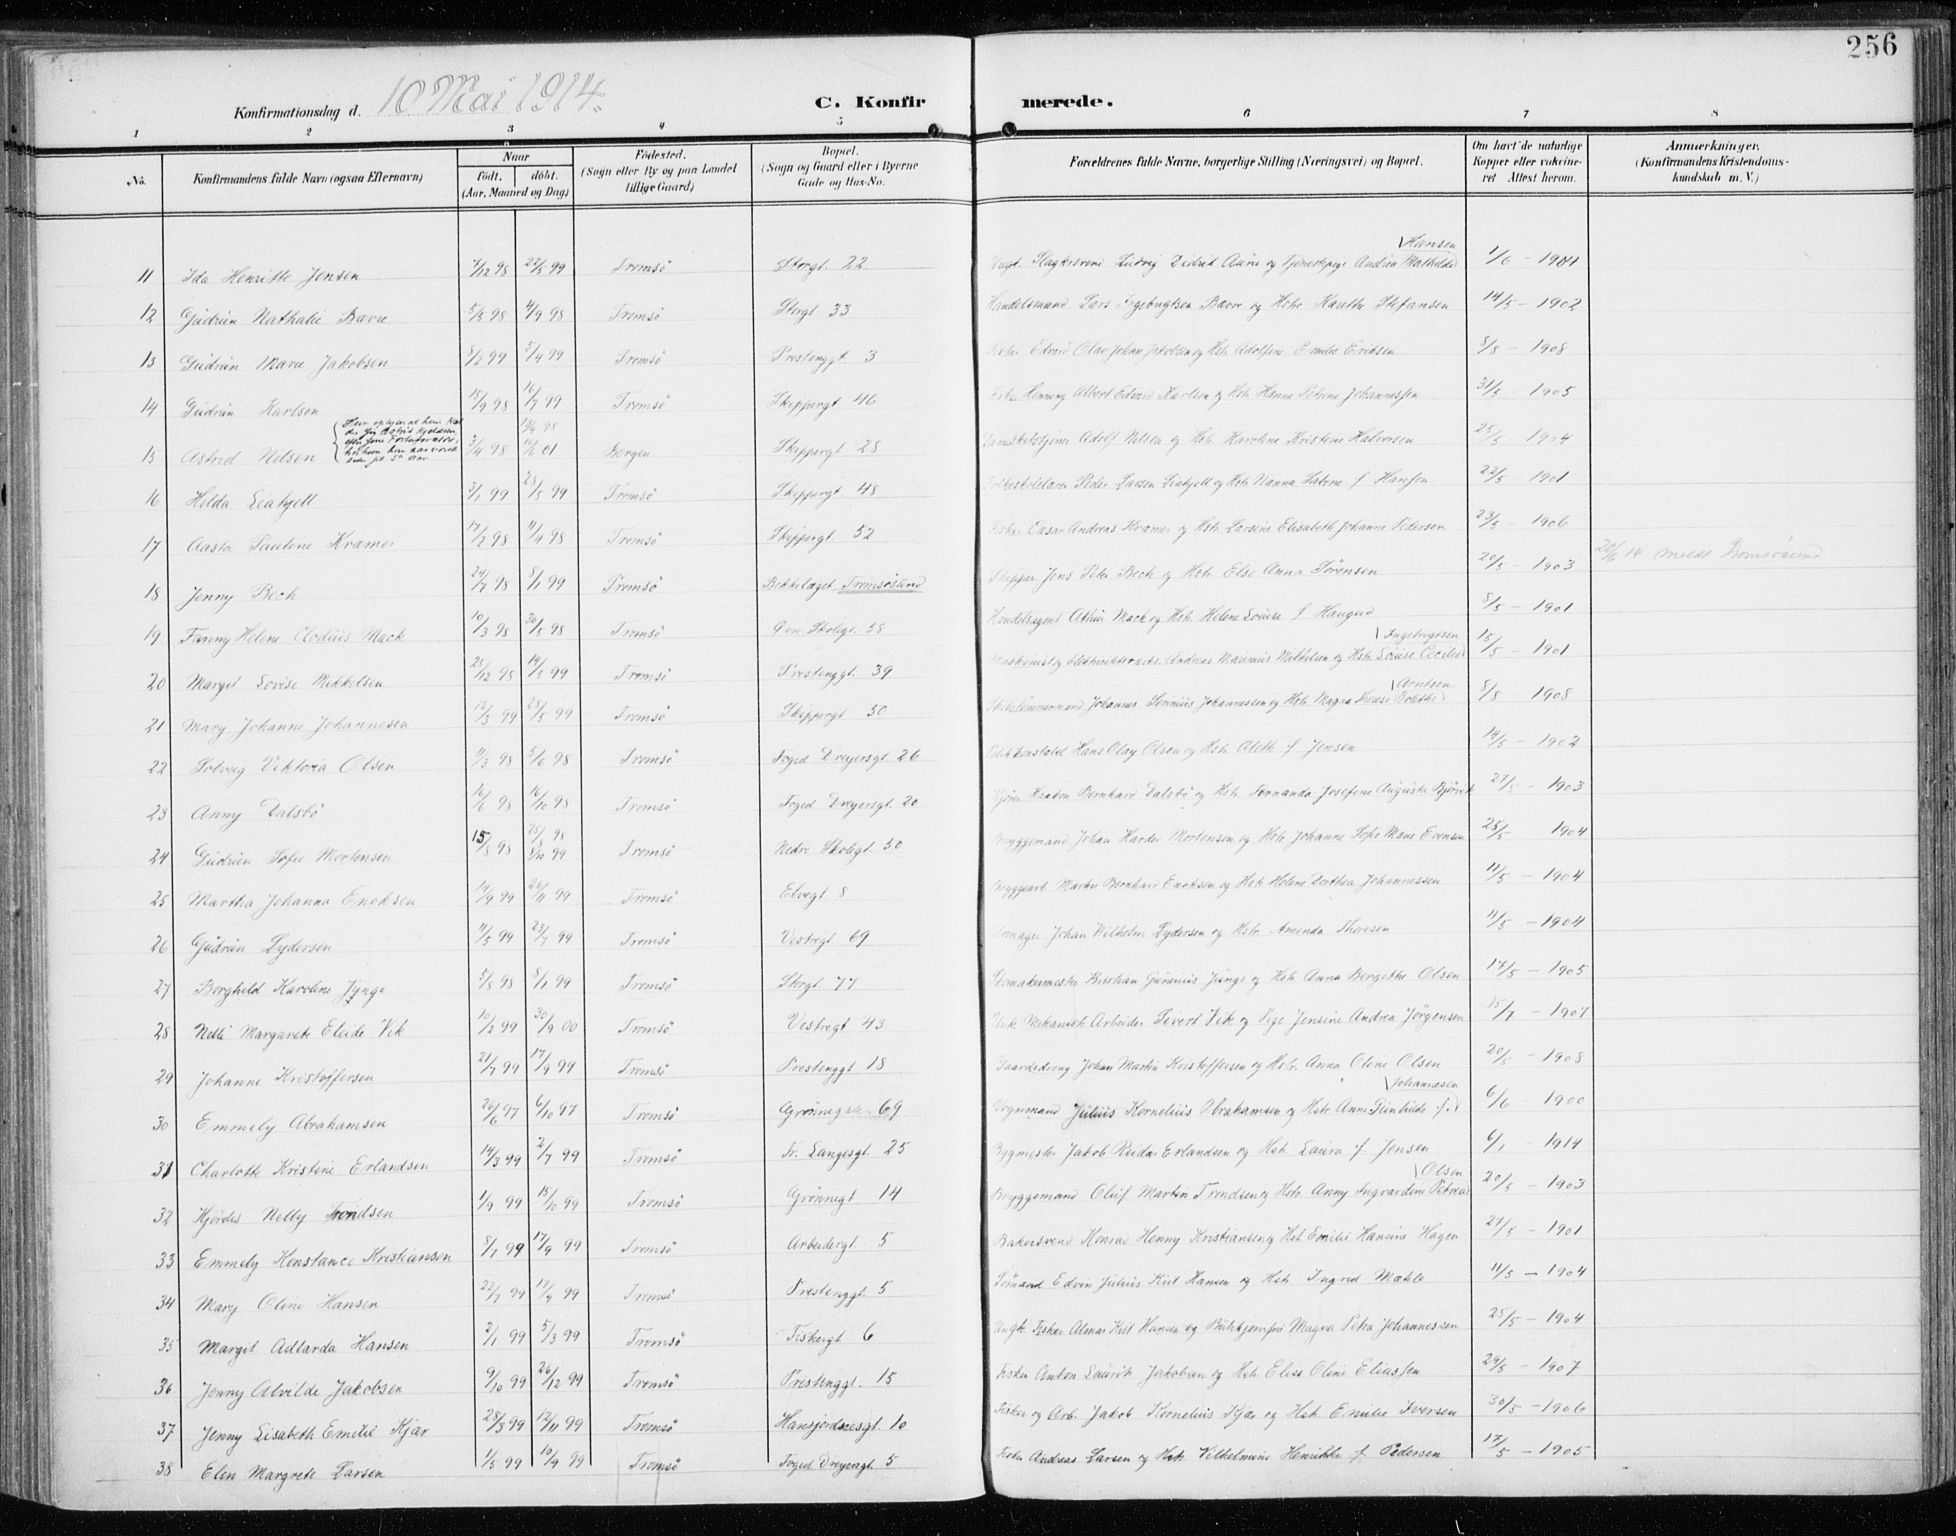 256
Konfirmationsdag d. 10 Mai 1914.
C. Konfirmerede.
1 2 3 4 5 6 7 8
No. Konfirmandens fulde Navn (ogsaa Efternavn) Naar født. døbt. (Aar, Maaned og Dag) Fødested. (Sogn eller By og paa Landet tillige Gaard) Bopæl. (Sogn og Gaard eller i Byerne Gade og Hus-No. Forældrenes fulde Navne, borgerlige Stilling (Næringsvei) og Bopæl. Om havt de naturlige Kopper eller vaksineret Attest herom. Anmærkninger. (Konfirmandens Kristendomskundskab m. V.)
11 Ida Henritte Jensen 7/12 98 99 Tromsö Storgt. 22 Ludvig Didrik Aune og Tjenestepige Andrea Mathilde Hansen 1/6 - 1901
12 Gudrun Nathalie Bavre 5/5 98 4/9 98 Tromsö Storgt 33 Handelsmand Lars Bavre og Hstr Karette Stefansen 14/5 - 1902
13 Gudrun Marie Jakobsen 8/2 99 5/4 99 Tromsö Prestenggt. 3 Fisker Edvard Olav Johan Jakobsen og Hstr Adolfine Emilie Eriksen 8/5 - 1908
14 Gudrun Karlsen 15/9 98 16/7 99 Tromsö Skippergt 46 Fisker Henning Albert Edvard Karlsen og Hstr Hanna Petrine Johannessen 31/5 - 1905
15 Astrid Nilsen 3/4 98 01 Bergen Skippergt 28 Adolf Nilsen og Hstr. Karoline Kristine Halvorsen 25/5 - 1904
16 Hilda Leatjell 3/1 99 23/5 99 Tromsö Skippergt. 48 Peder Larsen Leatjell og Hstr Nanna Sabine f. Hansen 22/5 - 1901
17 Aasta Pauline Kramer 17/2 98 11/4 98 Tromsö Skippergt. 52 Fisker Casar Andreas Kramer og Hstr Larsine Elisabeth Johanne Pedersen 23/5 - 1906
18 Jenny Bech 24/7 98 8/1 99 Tromsö Bekkelaget Tromsösund Skipper Jens Peter Bech og Hstr. Else Anna Sørensen 20/5 - 1903 20/5 14 meldt Tromsøsund
19 Fanny Helene Clodius Mack 10/3 98 20/5 98 Tromsö Övre Skolegt. 58 Handelsagent Athur Mack og Hstr. Helene Louise f. Haugerd 8/5 - 1901
20 Margit Lovise Mikkelsen 25/12 98 14/5 99 Tromsö Prestenggt. 39 Andreas Marinius Mikkelsen og Hstr. Louise Cecilie Ingebrigtsen 15/5 - 1901
21 Mary Johanne Johannesen 12/3 99 23/5 99 Tromsö Skippergt 50 Johannes Serinius Johannessen og Hstr Magna Bolethe Arntsen 8/5 - 1908
22 Solveig Viktoria Olsen 11/3 98 5/6 98 Tromsö Foged Dreyersgt 26 Hans Olay Olsen og Hstr. Alette f. Jensen 14/5 - 1902
23 Anny Dalsbö 16/6 98 16/10 98 Tromsö Foged Dreyersgt 20 Haakon Bernhard Dalsbö og Hstr. Fernanda Josefine Augusta 27/5 - 1903
24 Gudrun Sofie Mortensen 15/8 98 25/3 98 8/10 99 Tromsö Nedre Skolegt. 50 Bryggemand Johan Harder Mortensen og Hstr Johanne Sofie Marie Evensen 25/5 1904
25 Martha Johanna Enoksen 14/9 99 26/11 99 Tromsö Elvegt 8 Bryggearb. Martin Bernhard Enoksen og Hstr Helene Dorthea Johannessen 11/5 - 1904
26 Gudrun Lydersen 11/5 99 23/7 99 Tromsö Vestregt 69 Urmager Johan Wilhelm Lydersen og Hstr. Amanda Thoresen 11/5 - 1904
27 Borghild Karoline Junge 5/8 98 8/1 99 Tromsö Storgt. 77 Skomakermester Kristian Gunerius Junge og Hstr Anna Bergethe Olsen 17/5 - 1905
28 Nelli Margarete Eleide Vik 10/2 99 30/9 00 Tromsö Vestregt 43 Ungk Mekanisk Arbeider Sivert Vik og Pige Jensine Andrea Jørgensen 15/7 - 1907
29 Johanne Kristoffersen 21/7 99 17/9 99 Tromsö Prestenggt 18 Gaardsdreng Johan Martin Kristoffersen og Hstr. Anna Oline Olsen 20/5 - 1908
30 Emmely Abrahamsen 26/6 97 6/10 97 Tromsö Grönnegate 69 Vognmand Julius Kornelius Abrahamsen og Hstr Anne Gunhilde f. Johannesen 6/6 - 1900
31 Charlotte Kristine Erlandsen 14/3 99 2/7 99 Tromsö Fr. Langesgt 25 Bygmester Jakob Reidar Erlandsen og Hst Laura f. Jensen 6/1 - 1914
32 Hjördis Nelly Trondsen 1/9 99 15/10 99 Tromsö Grönnegt 14 Bryggemand Oluf Martin Trondsen og Hstr Anny Ingvardine Petrea Olsen 20/5 - 1903
33 Emmely Konstance Kristiansen 8/7 99 17/9 99 Tromsö Arbeidergt 5 Bakersvend Konrad Henny Kristiansen og Hst Emilie Hansine Hagen 21/5 - 1901
34 Mary Oline Hansen 22/7 99 17/9 99 Tromsö Prestenggt 5 Sömand Edvin Julius Kiil Hansen og Hstr Ingrid Mæhle 11/5 - 1904
35 Margit Adlarda Hansen 2/1 99 5/3 99 Tromsö Fiskergt 6 Ungk Fisker Almar Kiil Hansen og Magna Petra Johannessen 25/5 - 1904
36 Jenny Alvilde Jakobsen 9/10 99 26/12 99 Tromsö Prestenggt. 15 Fisker Anton Laurits Jakobsen og Hstr. Elise Oline Eliassen 29/5 - 1907
37 Jenny Lisabeth Emilie Kjær 28/3 99 12/11 99 Tromsö Hansjordnesgt. 10 Fisker og Arb. Jakob Kornelius Kjær og Hst. Emilie Iversen 30/5 - 1906
38 Elen Margrete Larsen 1/5 99 10/9 99 Tromsö Foged Dreyersgt. 5 Fisker Andreas Larsen og Hstr. Vilhelmine Henrikke f. Pedersen 17/5 - 1905